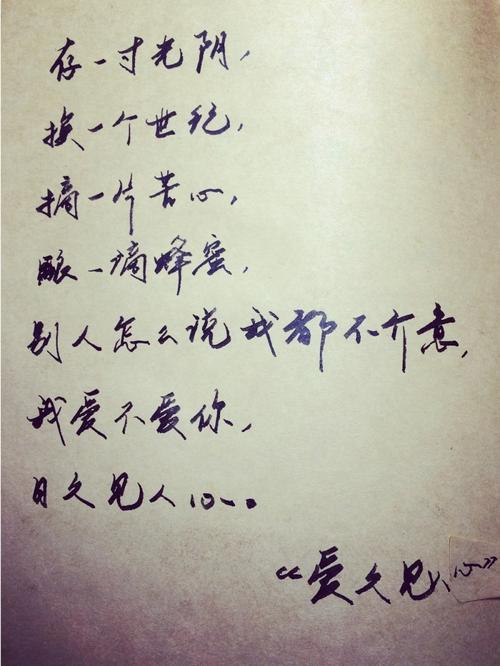 存一寸光阴，
换一个世纪，
摘一片苦心，
酿一滴蜂蜜，
别人怎么说我都不介意，
我爱不爱你，
日久见人心。
“爱久见人心”